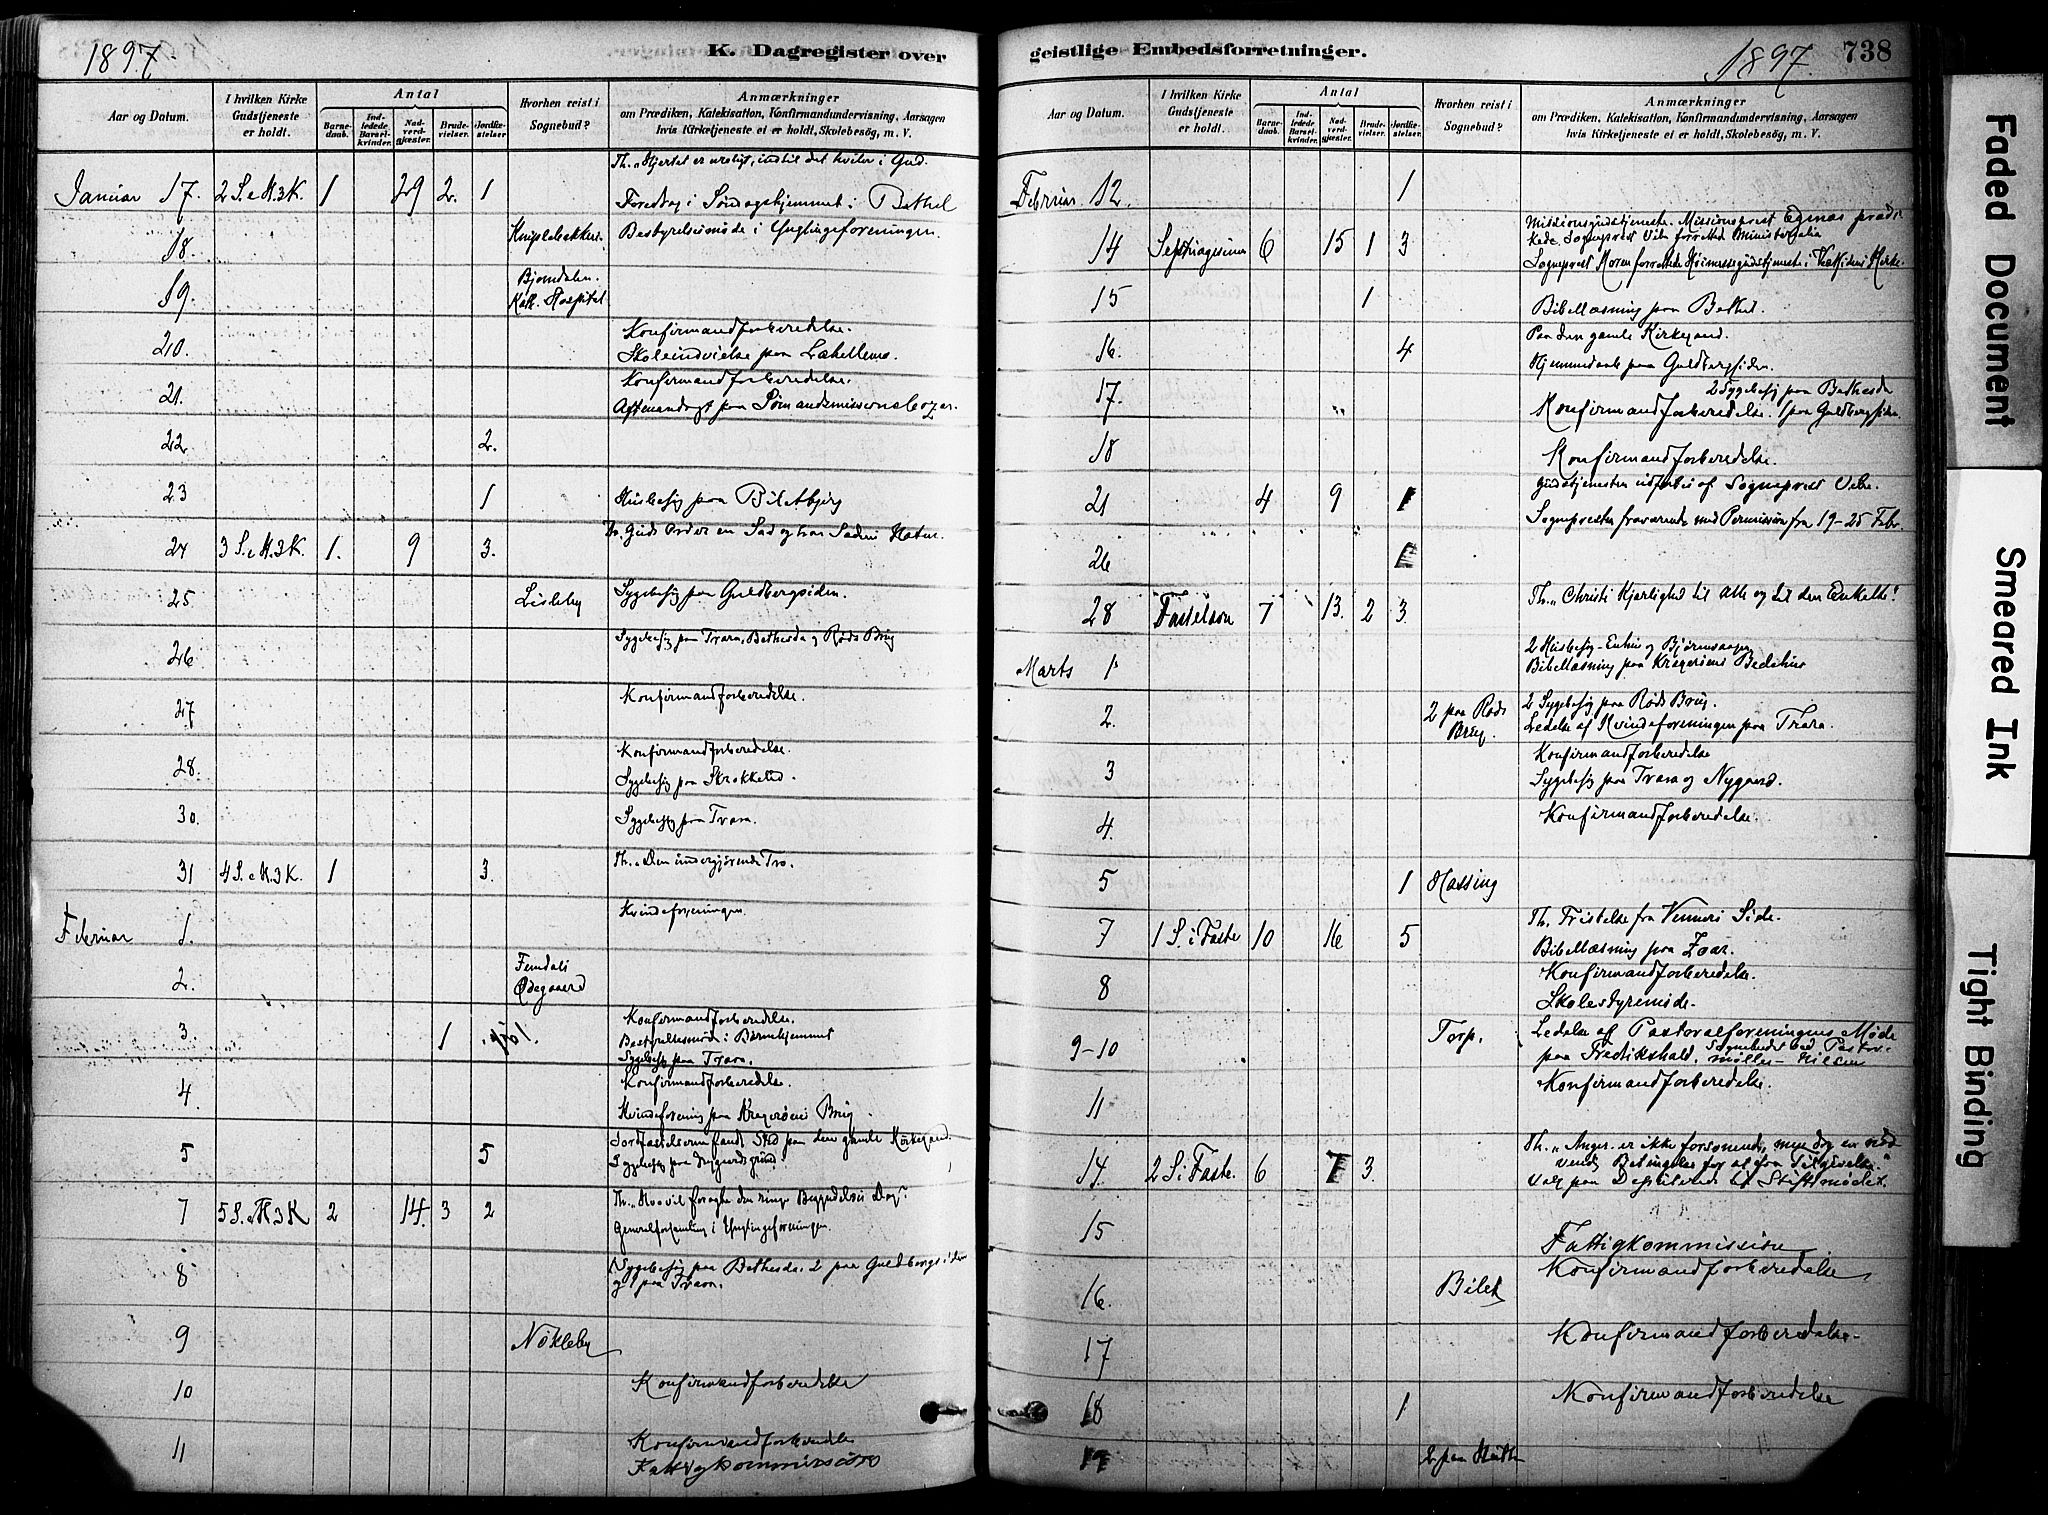 1897
K. Dagregister over
geistlige Embedsforretninger.
1897.
738
Aar og Datum.
I hvilken Kirke Gudstjeneste er holdt.
Antal
Barnedaab.
Indledede Barselkvinder.
Nadverdgjæster.
Brudevielser.
Jordfæstelser
Hvorhen reist i Sognebud?
Anmærkninger
om Prædiken, Katekisation, Konfirmandundervisning, Aarsagen
hvis Kirketjeneste ei er holdt, Skolebesøg, m. V.
Januar 17. 2 S. e H.3K. 1 29 2. 1 Th. "Hjertet er uroligt, indtil det hviler i Gud.
Foredrag i Søndagshjemmet i Bethel
18. Bestyrelsesmøde i Ynglingeforeningen.
19. Bjørndalen.
Kath. Hospital
20. Konfirmandforberedelse.
Skoleindvielse paa
21. Konfirmandforberedelse.
Aftenandagt paa
22 2.
23 1 Husbesøg paa Biletbjerg
24 3 S. e H.3K. 1. 9 3. Th. Guds Ord er en Sæd og har Sædens Natur.
25 Lisleby Sygebesøg paa Guldbergsiden.
26 Sygebesøg paa Trara, Bethesda og Røds Brug
27 Konfirmandforberedelse.
28. Konfirmandforberedelse.
Sygebesøg paa
30. Sygebesøg paa Trara.
31 4 S. e H.3K. 1 3. Th. "Den undergjørende Tro.
Februar 1. Kvindeforeningen
2. Ødegaard
3 1 Konfirmandforberedelse.
Bestyrelsesmøde i Børnehjemmet
Sygebesøg paa Trara.
4. Konfirmandforberedelse.
Kvindeforening paa Kragerøens Brug.
5 5 Jordfæstelserne fandt Sted paa den gamle Kirkegaard.
Sygebesøg paa Nygaardsgrund
7 5 S. e H.3K 2 14. 3 2 Th. "Hvo vil foragte den ringe Begyndelses Dag".
Generalforsamling i Ynglingeforeningen.
8 1 Sygebesøg paa Bethesda, 2 paa Guldbergsiden
og 1 paa Trara.
9 Nøkleby
10 Konfirmandforberedelse
11 Konfirmandforberedelse
Fattigkommission
Aar og Datum.
I hvilken Kirke Gudstjeneste er holdt.
Antal
Barnedaab.
Indledede Barselkvinder.
Nadverdgjæster.
Brudevielser.
Jordfæstelser
Hvorhen reist i Sognebud?
Anmærkninger
om Prædiken, Katekisation, Konfirmandundervisning, Aarsagen
hvis Kirketjeneste ei er holdt, Skolebesøg, m. V.
Februar 12. 1
14 Septuagesima 6 15 1 3 Missionsgudstjeneste. Missionsprest Egenæs prædi-
kede. Sogneprest Vibe forrettede Ministerialia
Sogneprest Horen forrettede Høimessegudstjeneste i Kirke.
15 1 Bibellæsning paa Bethel.
16. 4 Paa den gamle Kirkegaard.
Hjemmedaab paa Guldbergsiden.
17. 2 Sygebesøg paa Bethesda
Konfirmandforberedelse. 1 paa Guldbergsiden.
18 Konfirmandforberedelse.
21 4 9 1 Gudstjenesten udførtes af Sogneprest Vibe.
Sognepresten fraværende med Permission fra 19-25 Febr.
26
28 Fastelavn 7 13. 2 3. Th. "Christi Kjærlighed til Alle og til den Enkelte!
Marts 1. 2 Husbesøg
Bibellæsning paa Kragerøens Bedehus
2. 2 paa Røds Brug. 2 Sygebesøg paa Røds Brug.
Ledelse af Kvindeforeningen paa Trara.
3 Konfirmandforberedelse
Sygebesøg paa Trara og Nygaard.
4. Konfirmandforberedelse.
5 1 Hassing
7 1 S. i Faste 10 16 5 Th. Fristelse fra Venners Side.
Bibellæsning paa Zoar.
8 Konfirmandforberedelse.
Skolestyremøde.
9-10 Torp. Ledelse af Pastoralforeningens Møde
paa Fredrikshald. Sognebudet ved Pastor
Møller-Nilsen
11 Konfirmandforberedelse.
14. 2 S. i Faste. 6 7 3. Th. "Anger er ikke forsonende, men dog en nød-
vendig Betingelse for at faa Tilgivelse."
Valg paa Deputerede til Stiftsmødet.
15 Fattigkommission
16. Bilet Konfirmandforberedelse
17 Konfirmandforberedelse.
18 1 Konfirmandforberedelse
19 2 paa
Faded Document
Smeared Ink
Tight Binding